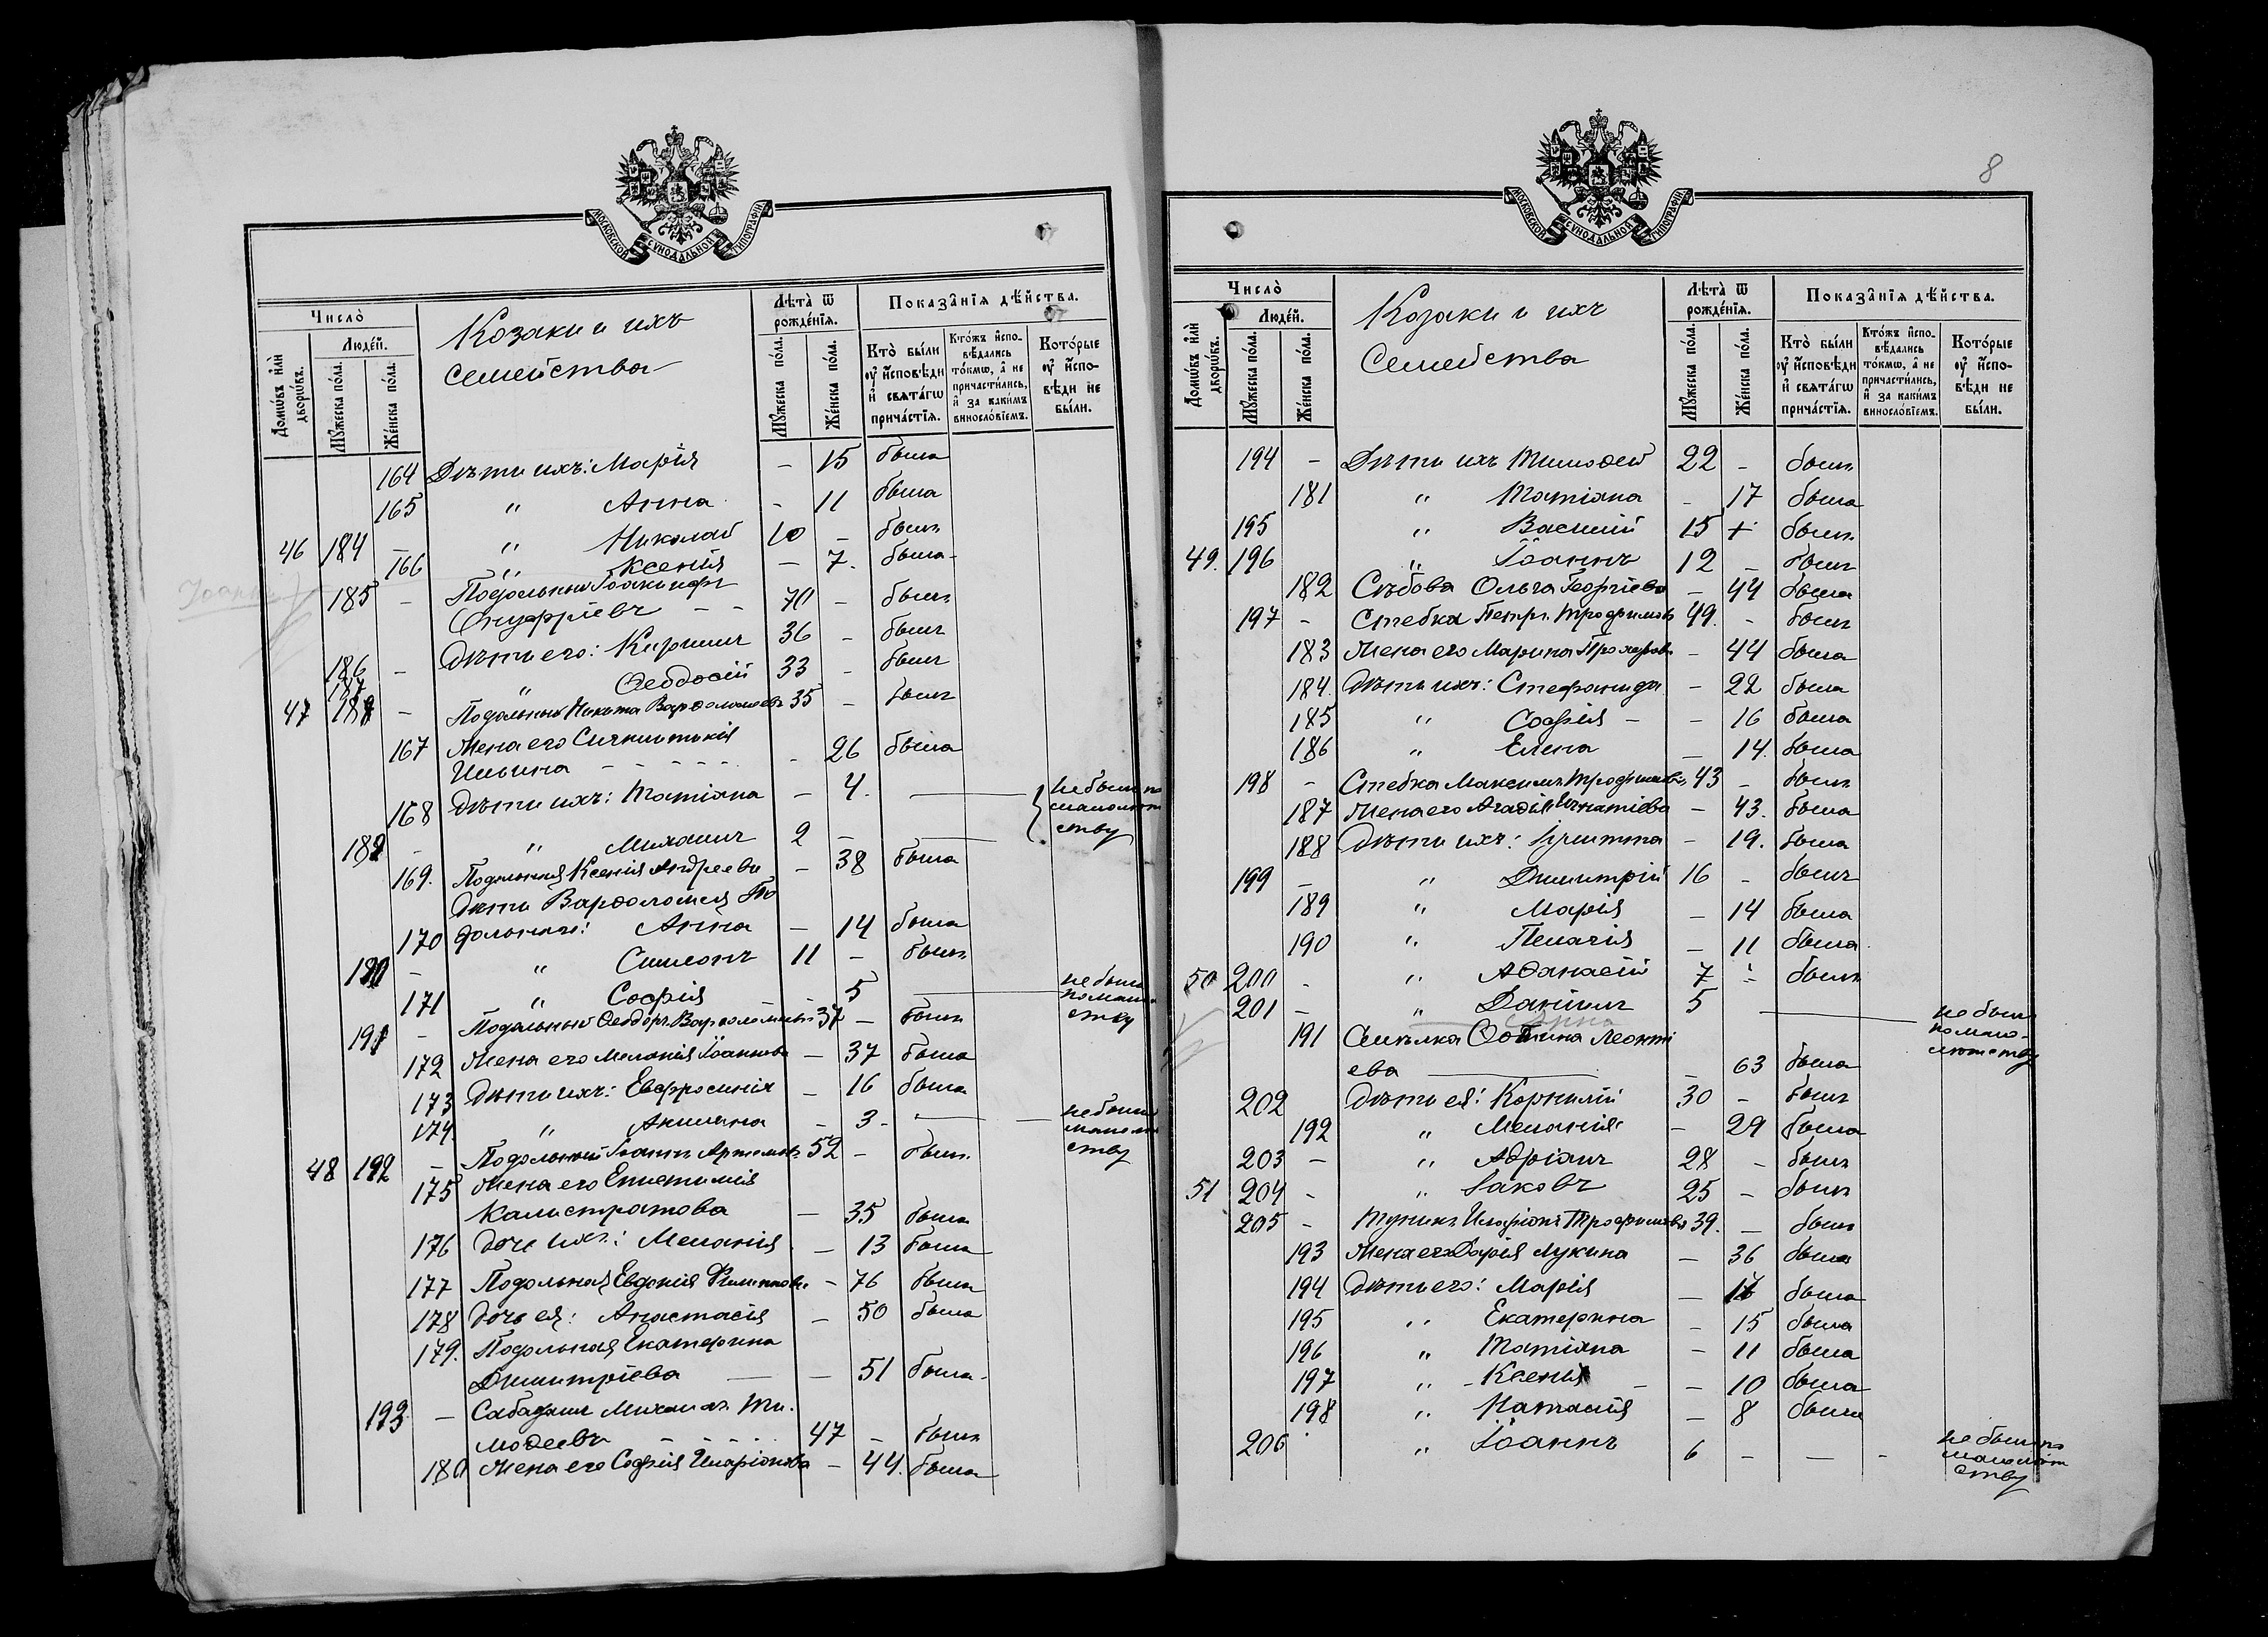 МОСКОВСКОЙ СУНОДАЛЬНОЙ ТИПОГРАФІИ
Число̀
Козаки и ихъ
семейства
Лѣта̀ ѿ рожде́нїѧ.
Показа̂нїѧ дѣ́йства.
Домѡ́въ и҆лѝ дворѡ́въ.
Люде́й.
Мꙋ́жеска по́ла.
Же́нска по́ла.
Мꙋ́жеска по́ла.
Же́нска по́ла.
Кто̀ бы́ли ᲂу҆ и҆́сповѣди и҆ свѧта́гѡ прича́стїѧ.
Кто́жъ и҆спо-вѣ́дались то́кмѡ, а҆ не причасти́лись, и҆ за каки́мъ винословїемъ.
Кото́рые ᲂу҆ и҆спо-вѣди не бы́ли.
164 Дѣти ихъ: Марія – 15 была
165 " Анна - 11 была
46 184 – " Николай 10 – былъ
166 " Ксенія – 7. была
185 – Подольный Іоакимъ
Онуфріевъ – – 70 – былъ
186 – Дѣти его: Кириллъ 36 – былъ
187 " Ѳеодосій 33 – былъ
47 188 – Подольный Никита Варѳоломеевъ 35 – былъ
167 Жена его Синклитикія
Ильина - - - - - 26 была
168 Дѣти ихъ: Татіана – 4. не были по
малолѣт
ству
189 – " Михаилъ 2 –
169. Подольная Ксенія Андреева – 38 была
Дѣти Варѳоломея По
170 дольнаго: Анна – 14 была
190 – " Симеонъ 11 – былъ
171 " Софія 5 не была
по мало
ству
191 – Подольный Ѳеодоръ Варѳоломеевъ 37 – былъ
172 Жена его Меланія Іоаннова – 37 была
173 Дѣти ихъ: Евфросинія – 16 была
174. " Акилина – 3 - не была
малолѣт
ству
48 192 – Подольный Іоаннъ Артемовъ 52 – былъ
175 Жена его Епистимія
Калистратова – 35 была
176 дочь ихъ: Меланія – 13 была
177 Подольная Евдокія Филиппова – 76 была
178 дочь ея: Анастасія – 50 была
179. Подольная Екатерина
Димитріева – 51 была
193 – Сабадашъ Михаилъ Ти-
моѳеевъ 47 – былъ
180 Жена его Софія Иларіонова – 44. была
8
МОСКОВСКОЙ СУНОДАЛЬНОЙ ТИПОГРАФІИ
Число̀
Козаки и ихъ
Семейства
Лѣта̀ ѿ рожде́нїѧ.
Показа̂нїѧ дѣ́йства.
Домѡ́въ и҆лѝ дворѡ́въ.
Люде́й.
Мꙋ́жеска по́ла.
Же́нска по́ла.
Мꙋ́жеска по́ла.
Же́нска по́ла.
Кто̀ бы́ли ᲂу҆ и҆́сповѣди и҆ свѧта́гѡ прича́стїѧ.
Кто́жъ и҆спо-вѣ́дались то́кмѡ, а҆ не причасти́лись, и҆ за каки́мъ винословїемъ.
Кото́рые ᲂу҆ и҆спо-вѣди не бы́ли.
194 – Дѣти ихъ Тимоѳей 22 – былъ
181 " Татіана – 17 была
195 " Василій 15 + былъ
49. 196 " Іоаннъ 12 – былъ
182 Ольга Георгіева – 44 была
197 – Стебка Петръ Трофимовъ 49. – былъ
183 Жена его Марина Прохорова – 44 была
184. Дѣти ихъ: Стефанида – 22 была
185 " Софія – – 16 была
186 " Елена – 14. была
198 – Стебка Максимъ Трофимовъ 43 – былъ
187 Жена его Агафія Игнатіева – 43. была
188 Дѣти ихъ: Іулитта – 19. была
199 – " Димитрій 16 – былъ
189 " Марія – 14 была
190 " Пелагія – 11 была
50 200 – " Аѳанасій 7 – былъ
201 – " Даніилъ 5 не былъ
по мало-
лѣтству
191 Леонті
ева – 63 была
202 Дѣти ея: Корнилій 30 – былъ
192 " Меланія – 29 была
203 – " Адріанъ 28 – былъ
51 204 – " Іаковъ 25 – былъ
205 – Иларіонъ Трофимовъ 39. – былъ
193 Жена его Дарія Лукина – 36 была
194 Дѣти его: Марія – была
195 " Екатерина – 15 была
196 " Татіана – 11 была
197 " Ксенія – 10 была
198 " Наталія – 8 была
206 " Іоаннъ 6 – – - не былъ по
малолѣт
ству